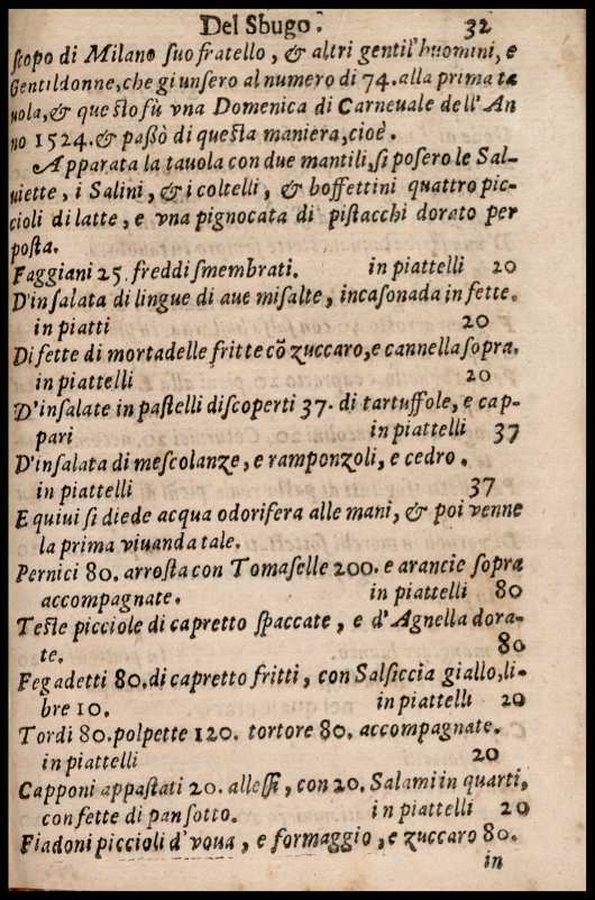 Del Sbugo. 32
ſcopo di Milano ſuo fratello, & altri gentil'huomini, e
Gentildonne, che giunſero al numero di 74. alla prima ta
uola, & queſto fù vna Domenica di Carneuale dell'An
no 1524. & paßò di queſta maniera, cioè.
Apparata la tauola con due mantili, ſi poſero le Sal-
uiette, i Salini, & i coltelli, & boffettini quattro pic-
cioli di latte, e vna pignocata di piſtacchi dorato per
poſta.
Faggiani 25 freddi ſmembrati. in piattelli 20
D'inſalata di lingue di aue miſalte, incaſonada in fette.
in piatti 20
Di fette di mortadelle fritte cõ zuccaro, e cannella ſopra.
in piattelli 20
D'inſalate in paſtelli diſcoperti 37. di tartuffole, e cap-
pari in piattelli 37
D'inſalata di meſcolanze, e ramponzoli, e cedro.
in piattelli 37
E quiui ſi diede acqua odorifera alle mani, & poi venne
la prima viuanda tale.
Pernici 80. arroſta con Tomaſelle 200. e arancie ſopra
accompagnate. in piattelli 80
Teſte picciole di capretto ſpaccate, e d'Agnella dora-
te. 80
Fegadetti 80. di capretto fritti, con Salſiccia giallo, li-
bre 10. in piattelli 20
Tordi 80. polpette 120. tortore 80. accompagnate.
in piattelli 20
Capponi appaſtati 20. alleſſi, con 20. Salami in quarti,
con fette di pan ſotto. in piattelli 20
Fiadoni piccioli d'voua, e formaggio, e zuccaro 80.
in